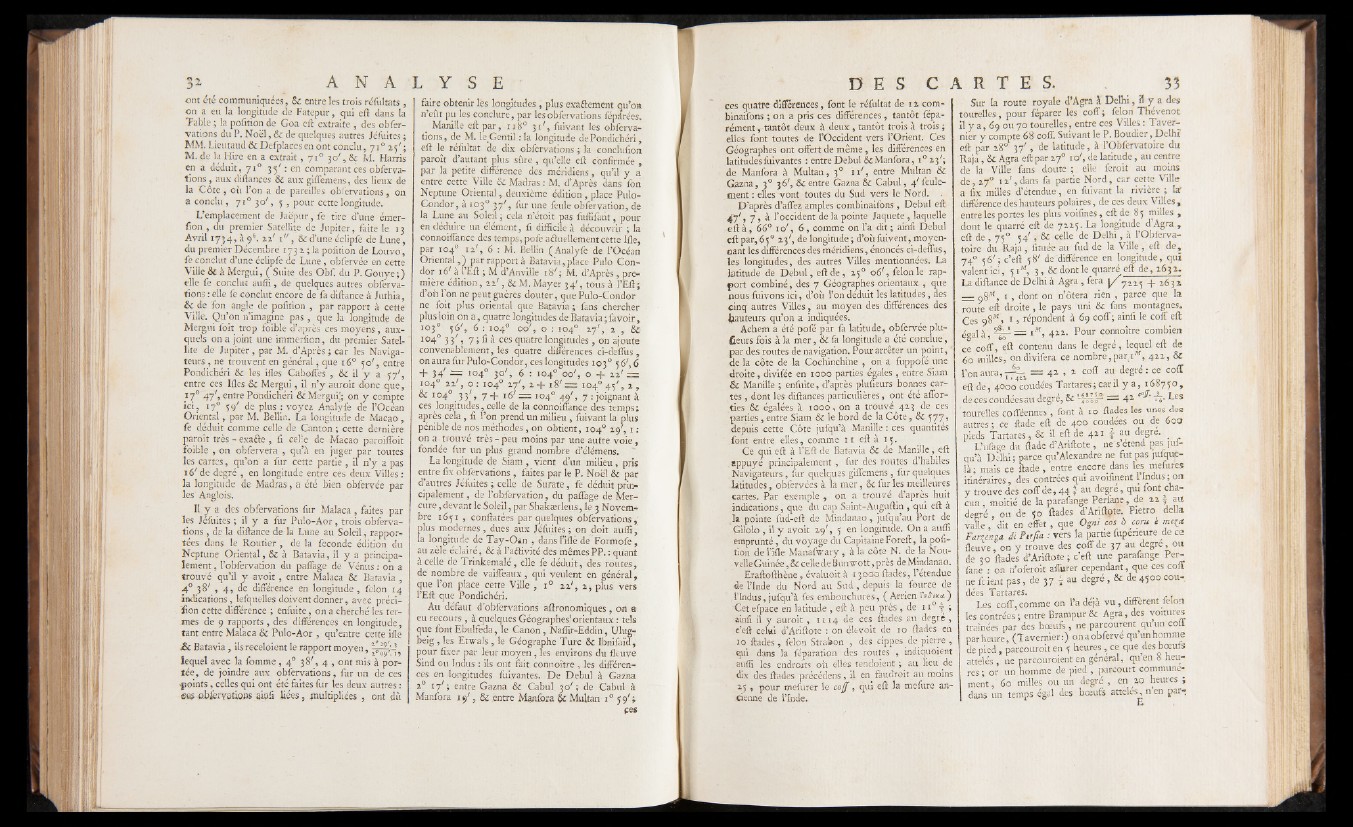 32 A N A L Y S E
ont été communiquées, & entre les trois réſultats,
on a eu la longitude de Fatepur, qui eſt dans la
Table; la poſition de Goa eſt extraite, des obſer-
vations du P. Noël, & de quelques autres Jéſuites;
MM. Lieutaud & Deſplaces en ont conclu, 71° 25′;
M. de la Hire en a extrait, 71° 30′, & M. Harris
en a déduit, 71° 35′: en comparant ces obſerva-
tions, aux diſtances & aux giſſemens, des lieux de
la Côte, où l'on a de pareilles obſervations, on
a conclu, 71° 30′, 5, pour cette longitude.
L'emplacement de Jaëpur, ſe tire d'une émer-
ſion, du premier Satellite de Jupiter, faite le 13
Avril 1734, à 9h. 22′ 1″, & d'une éclipſe de Lune,
du premier Décembre 1732; la poſition de Louvo,
ſe conclut d'une éclipſe de Lune, obſervée en cette
Ville & à Mergui, (Suite des Obſ. du P. Gouye;)
elle ſe conclut auſſi, de quelques autres obſerva-
tions: elle ſe conclut encore de ſa diſtance à Juthia,
& de ſon angle de poſition, par rapport à cette
Ville. Qu'on n'imagine pas, que la longitude de
Mergui ſoit trop foible d'après ces moyens, aux-
quels on a joint une immerſion, du premier Satel-
lite de Jupiter, par M. d'Après; car les Naviga-
teurs, ne trouvent en général, que 16° 50′, entre
Pondichéri & les iſles Caboſſes, & il y a 57′,
entre ces Iſles & Mergui, il n'y auroit donc que,
17° 47′, entre Pondichéri & Mergui; on y compte
ici, 17° 59′ de plus: voyez Analyſe de l'Océan
Oriental, par M. Bellin. La longitude de Macao,
ſe déduit comme celle de Canton; cette dernière
paroît très-exacte, ſi celle de Macao paroiſſoit
foible, on obſervera, qu'à en juger par toutes
les cartes, qu'on a ſur cette partie, il n'y a pas
16′ de degré, en longitude entre ces deux Villes:
la longitude de Madras, a été bien obſervée par
les Anglois.
Il y a des obſervations ſur Malaca, faites par
les Jéſuites; il y a ſur Pulo-Aor, trois obſerva-
tions, de la diſtance de la Lune au Soleil, rappor-
tées dans le Routier, de la ſeconde édition du
Neptune Oriental, & à Batavia, il y a principa-
lement, l'obſervation du paſſage de Vénus: on a
trouvé qu'il y avoit, entre Malaca & Batavia,
4° 38′, 4, de différence en longitude, ſelon 14
indications, leſquelles doivent donner, avec préci-
ſion cette différence; enſuite, on a cherché les ter-
mes de 9 rapports, des différences en longitude,
tant entre Malaca & Pulo-Aor, qu'entre cette iſle
& Batavia, ils receloient le rapport moyen,
lequel avec la ſomme, 4° 38′, 4, ont mis à por-
tée, de joindre aux obſervations, ſur un de ces
points, celles qui ont été faites ſur les deux autres:
ces obſervations ainſi liées, multipliées, ont dû
faire obtenir les longitudes, plus exactement qu'on
n'eût pu les conclure, par les obſervations ſéparées.
Manille eſt par, 118° 31′, ſuivant les obſerva-
tions, de M. le Gentil: la longitude de Pondichéri,
eſt le réſultat de dix obſervations; la concluſion
paroît d'autant plus sûre, qu'elle eſt confirmée,
par la petite différence des méridiens, qu'il y a
entre cette Ville & Madras: M. d'Après dans ſon
Neptune Oriental, deuxième édition, place Pulo-
Condor, à 103° 37′, ſur une ſeule obſervation, de
la Lune au Soleil; cela n'étoit pas ſuffiſant, pour
en déduire un élément, ſi difficile à découvrir; la
connoiſſance des temps, poſe actuellement cette Iſle,
par 104° 12′, 6: M. Bellin (Analyſe de l'Océan
Oriental,) par rapport à Batavia, place Pulo Con-
dor 16′ à l'Eſt; M d'Anville 18′; M. d'Après, pre-
miere édition, 22′, & M. Mayer 34′, tous à l'Eſt;
d'où l'on ne peut guéres douter, que Pulo-Condor
ne ſoit plus oriental que Batavia; ſans chercher
plus loin on a, quatre longitudes de Batavia; ſavoir,
103° 56′, 6: 104° 00′, 0: 104° 27′, 2, &
104° 33′, 7; ſi à ces quatre longitudes, on ajoute
convenablement, les quatre différences ci-deſſus,
on aura ſur Pulo-Condor, ces longitudes 103° 56′, 6
+ 34′ = 104° 30′, 6: 104° 00′, 0 + 22′ =
104° 22′, 0: 104° 27′, 2 + 18′ = 104° 45′, 2,
& 104° 33′, 7 + 16′ = 104° 49′, 7: joignant à
ces longitudes, celle de la connoiſſance des temps;
après cela, ſi l'on prend un milieu, ſuivant la plus
pénible de nos méthodes, on obtient, 104° 29′, 1:
on a trouvé très-peu moins par une autre voie,
fondée ſur un plus grand nombre d'élémens.
La longitude de Siam, vient d'un milieu, pris
entre ſix obſervations, faites par le P. Noël & par
d'autres Jéſuites; celle de Surate, ſe déduit prin-
cipalement, de l'obſervation, du paſſage de Mer-
cure, devant le Soleil, par Shakærleus, le 3 Novem-
bre 1651, conſtatées par quelques obſervations,
plus modernes, dues aux Jéſuites; on doit auſſi,
la longitude de Tay-Oan, dans l'iſle de Formoſe,
au zèle éclairé, & à l'activité des mêmes PP.: quant
à celle de Trinkemalé, elle ſe déduit, des routes,
de nombre de vaiſſeaux, qui veulent en général,
que l'on place cette Ville, 1° 22′, 2, plus vers
l'Eſt que Pondichéri.
Au défaut d'obſervations aſtronomiques, on a
eu recours, à quelques Géographes orientaux: tels
que ſont Ebulfeda, le Canon, Naſſir-Eddin, Ulug-
beig, les Etwals, le Géographe Turc & Ibnſaid,
pour fixer par leur moyen, les environs du fleuve
Sind ou Indus: ils ont fait connoître, les différen-
ces en longitudes ſuivantes. De Debul à Gazna
2° 17′; entre Gazna & Cabul 30′; de Cabul à
Manſora 19′, & entre Manſora & Multan 1° 59′;
ces
D E S C A R T E S. 33
ces quatre différences, ſont le réſultat de 12 com-
binaiſons; on a pris ces différences, tantôt ſépa-
rément, tantôt deux à deux, tantôt trois à trois;
elles ſont toutes de l'Occident vers l'Orient. Ces
Géographes ont offert de même, les différences en
latitudes ſuivantes: entre Debul & Manſora, 1° 23′;
de Manſora à Multan, 3° 11′, entre Multan &
Gazna, 3° 36′, & entre Gazna & Cabul, 4′ ſeule-
ment: elles vont toutes du Sud vers le Nord.
D'après d'aſſez amples combinaiſons, Debul eſt
47′, 7, à l'occident de la pointe Jaquete, laquelle
eſt à, 66° 10′, 6, comme on l'a dit; ainſi Debul
eſt par, 65° 23′, de longitude; d'où ſuivent, moyen-
nant les différences des méridiens, énoncés ci-deſſus,
les longitudes, des autres Villes mentionnées. La
latitude de Debul, eſt de, 25° 06′, ſelon le rap-
port combiné, des 7 Géographes orientaux, que
nous ſuivons ici, d'où l'on déduit les latitudes, des
cinq autres Villes, au moyen des différences des
hauteurs qu'on a indiquées.
Achem a été poſé par ſa latitude, obſervée plu-
ſieurs fois à la mer, & ſa longitude a été conclue,
par des routes de navigation. Pour arrêter un point,
de la côte de la Cochinchine, on a ſuppoſé une
droite, diviſée en 1000 parties égales, entre Siam
& Manille; enſuite, d'après pluſieurs bonnes car-
tes, dont les diſtances particulières, ont été aſſor-
ties & égalées à 1000, on a trouvé 423 de ces
parties, entre Siam & le bord de la Côte, & 577,
depuis cette Côte juſqu'à Manille: ces quantités
ſont entre elles, comme 11 eſt à 15.
Ce qui eſt à l'Eſt de Batavia & de Manille, eſt
appuyé principalement, ſur des routes d'habiles
Navigateurs, ſur quelques giſſemens, ſur quelques
latitudes, obſervées à la mer, & ſur les meilleures
cartes. Par exemple, on a trouvé d'après huit
indications, que du cap Saint-Auguſtin, qui eſt à
la pointe ſud-eſt de Mindanao, juſqu'au Port de
Gilolo, il y avoit 29′, 5 en longitude. On a auſſi
emprunté, du voyage du Capitaine Foreſt, la poſi-
tion de l'iſle Manaſwary, à la côte N. de la Nou-
velle Guinée, & celle de Bunwott, près de Mindanao.
Eraſtoſthène, évaluoit à 13000 ſtades, l'étendue
de l'Inde du Nord au Sud, depuis la ſource de
l'Indus, juſqu'à ſes embouchures,
Cet eſpace en latitude, eſt à peu près, de 11°
ainſi il y auroit, 1114 de ces ſtades au degré,
c'eſt celui d'Ariſtote: on élevoit de 10 ſtades en
10 ſtades, ſelon Strabon, des cippes de pierre,
qui dans la ſéparation des routes, indiquoient
auſſi les endroits où elles tendoient; au lieu de
dix des ſtades précédens, il en faudroit au moins
25, pour meſurer le coſſ, qui eſt la meſure an-
cienne de l'Inde.
Sur la route royale d'Agra à Delhi, il y a des
tourelles, pour ſéparer les coſſ; ſelon Thévenot
il y a, 69 ou 70 tourelles, entre ces Villes: Taver-
nier y compte 68 coſſ. Suivant le P. Boudier, Delhi
eſt par 28° 37′, de latitude, à l'Obſervatoire du
Raja, & Agra eſt par 27° 10′, de latitude, au centre
de la Ville ſans doute; elle ſeroit au moins
de, 27° 12′, dans ſa partie Nord, car cette Ville
a ſix milles d'étendue, en ſuivant la rivière; la
différence des hauteurs polaires, de ces deux Villes,
entre les portes les plus voiſines, eſt de 85 milles,
dont le quarré eſt de 7225. La longitude d'Agra,
eſt de, 75° 54′, & celle de Delhi, à l'Obſerva-
toire du Raja, ſituée au ſud de la Ville, eſt de,
74° 56′; c'eſt 58′ de différence en longitude, qui
valent ici, 51M, 3, & dont le quarré eſt de, 2632.
La diſtance de Delhi à Agra, ſera √7225 + 2632
= 98M, 1, dont on n'ôtera rien, parce que la
route eſt droite, le pays uni & ſans montagnes.
Ces 98M, 1, répondent à 69 coſſ; ainſi le coſſ eſt
égal à, = 1M, 422. Pour connoître combien
ce coſſ, eſt contenu dans le degré, lequel eſt de
60 milles, on diviſera ce nombre, par 1M, 422, &
l'on aura, = 42, 2 coſſ au degré: ce coſſ
eſt de, 4000 coudées Tartares; car il y a, 168750,
de ces coudées au degré, & = 42 Les
tourelles coſſéennes, ſont à 10 ſtades les unes des
autres; ce ſtade eſt de 400 coudées ou de 600
pieds Tartares, & il eſt de 421 au degré.
L'uſage du ſtade d'Ariſtote, ne s'étend pas juſ-
qu'à Delhi; parce qu'Alexandre ne fut pas juſque-
là; mais ce ſtade, entre encore dans les meſures
itinéraires, des contrées qui avoiſinent l'Indus; on
y trouve des coſſ de, 44 au degré, qui ſont cha-
cun, moitié de la paraſange Perſane, de 22 au
degré, ou de 50 ſtades d'Ariſtote. Pietro della
valle, dit en effet, que Ogni cos ò coru è meza
Farzenga di Perſia: vers la partie ſupérieure de ce
fleuve, on y trouve des coſſ de 37 au degré, ou
de 30 ſtades d'Ariſtote; c'eſt une paraſange Per-
ſane: on n'oſeroit aſſurer cependant, que ces coſſ
ne ſient pas, de 37 au degré, & de 4500 cou-
dées Tartares.
Les coſſ, comme on l'a déjà vu, diffèrent ſelon
les contrées; entre Brampur & Agra, des voitures
traînées par des bœufs, ne parcourent qu'un coſſ
par heure, (Tavernier:) on a obſervé qu'un homme
de pied, parcouroit en 5 heures, ce que des bœufs
attelés, ne parcouroient en général, qu'en 8 heu-
res; or un homme de pied, parcourt communé-
ment, 60 milles ou un degré, en 20 heures;
dans un temps égal des bœufs attelés, n'en par-
E